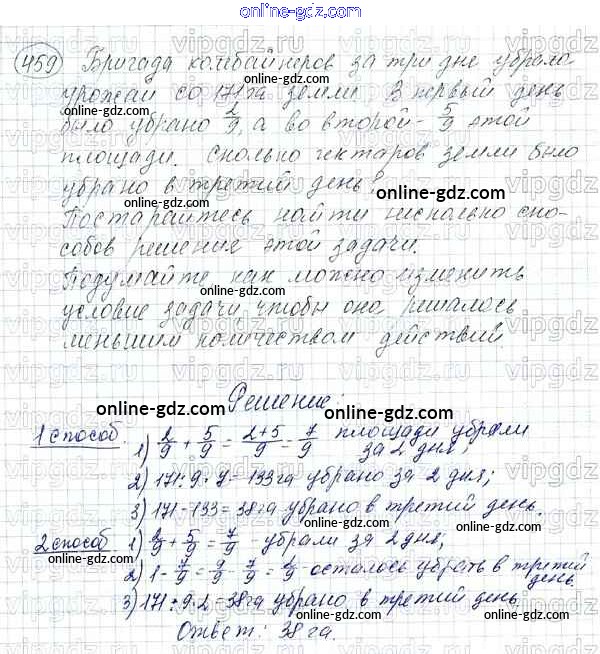 online-gdz.com
459) Бригада комбайнеров за три дне убрала
урожай со 171 га земли. В первый день
было убрано 2/9, а во второй - 5/9 этой
площади. Сколько гектаров земли было
убрано в третий день?
online-gdz.com
Постарайтесь найти несколько спо-
собов решения этой задачи.
Подумайте как можно изменить
online-gdz.com
условие задачи, чтобы она решалось
меньшим количеством действий
online-gdz.com
Решение:
online-gdz.com
1 способ. 1) 2/9 + 5/9 = 2+5/9 = 7/9 площади убрали
за 2 дня;
2) 171 : 9 · 7 = 133 га убрано за 2 дня;
3) 171 - 133 = 38 га убрано в третий день.
online-gdz.com
2 способ 1) 2/9 + 5/9 = 7/9 - убрали за 2 дня;
2) 1 - 7/9 = 9/9 - 7/9 = 2/9 осталось убрать в третий
день
3) 171 : 9 · 2 = 38 га убрано в третий день
Ответ: 38 га.
online-gdz.com